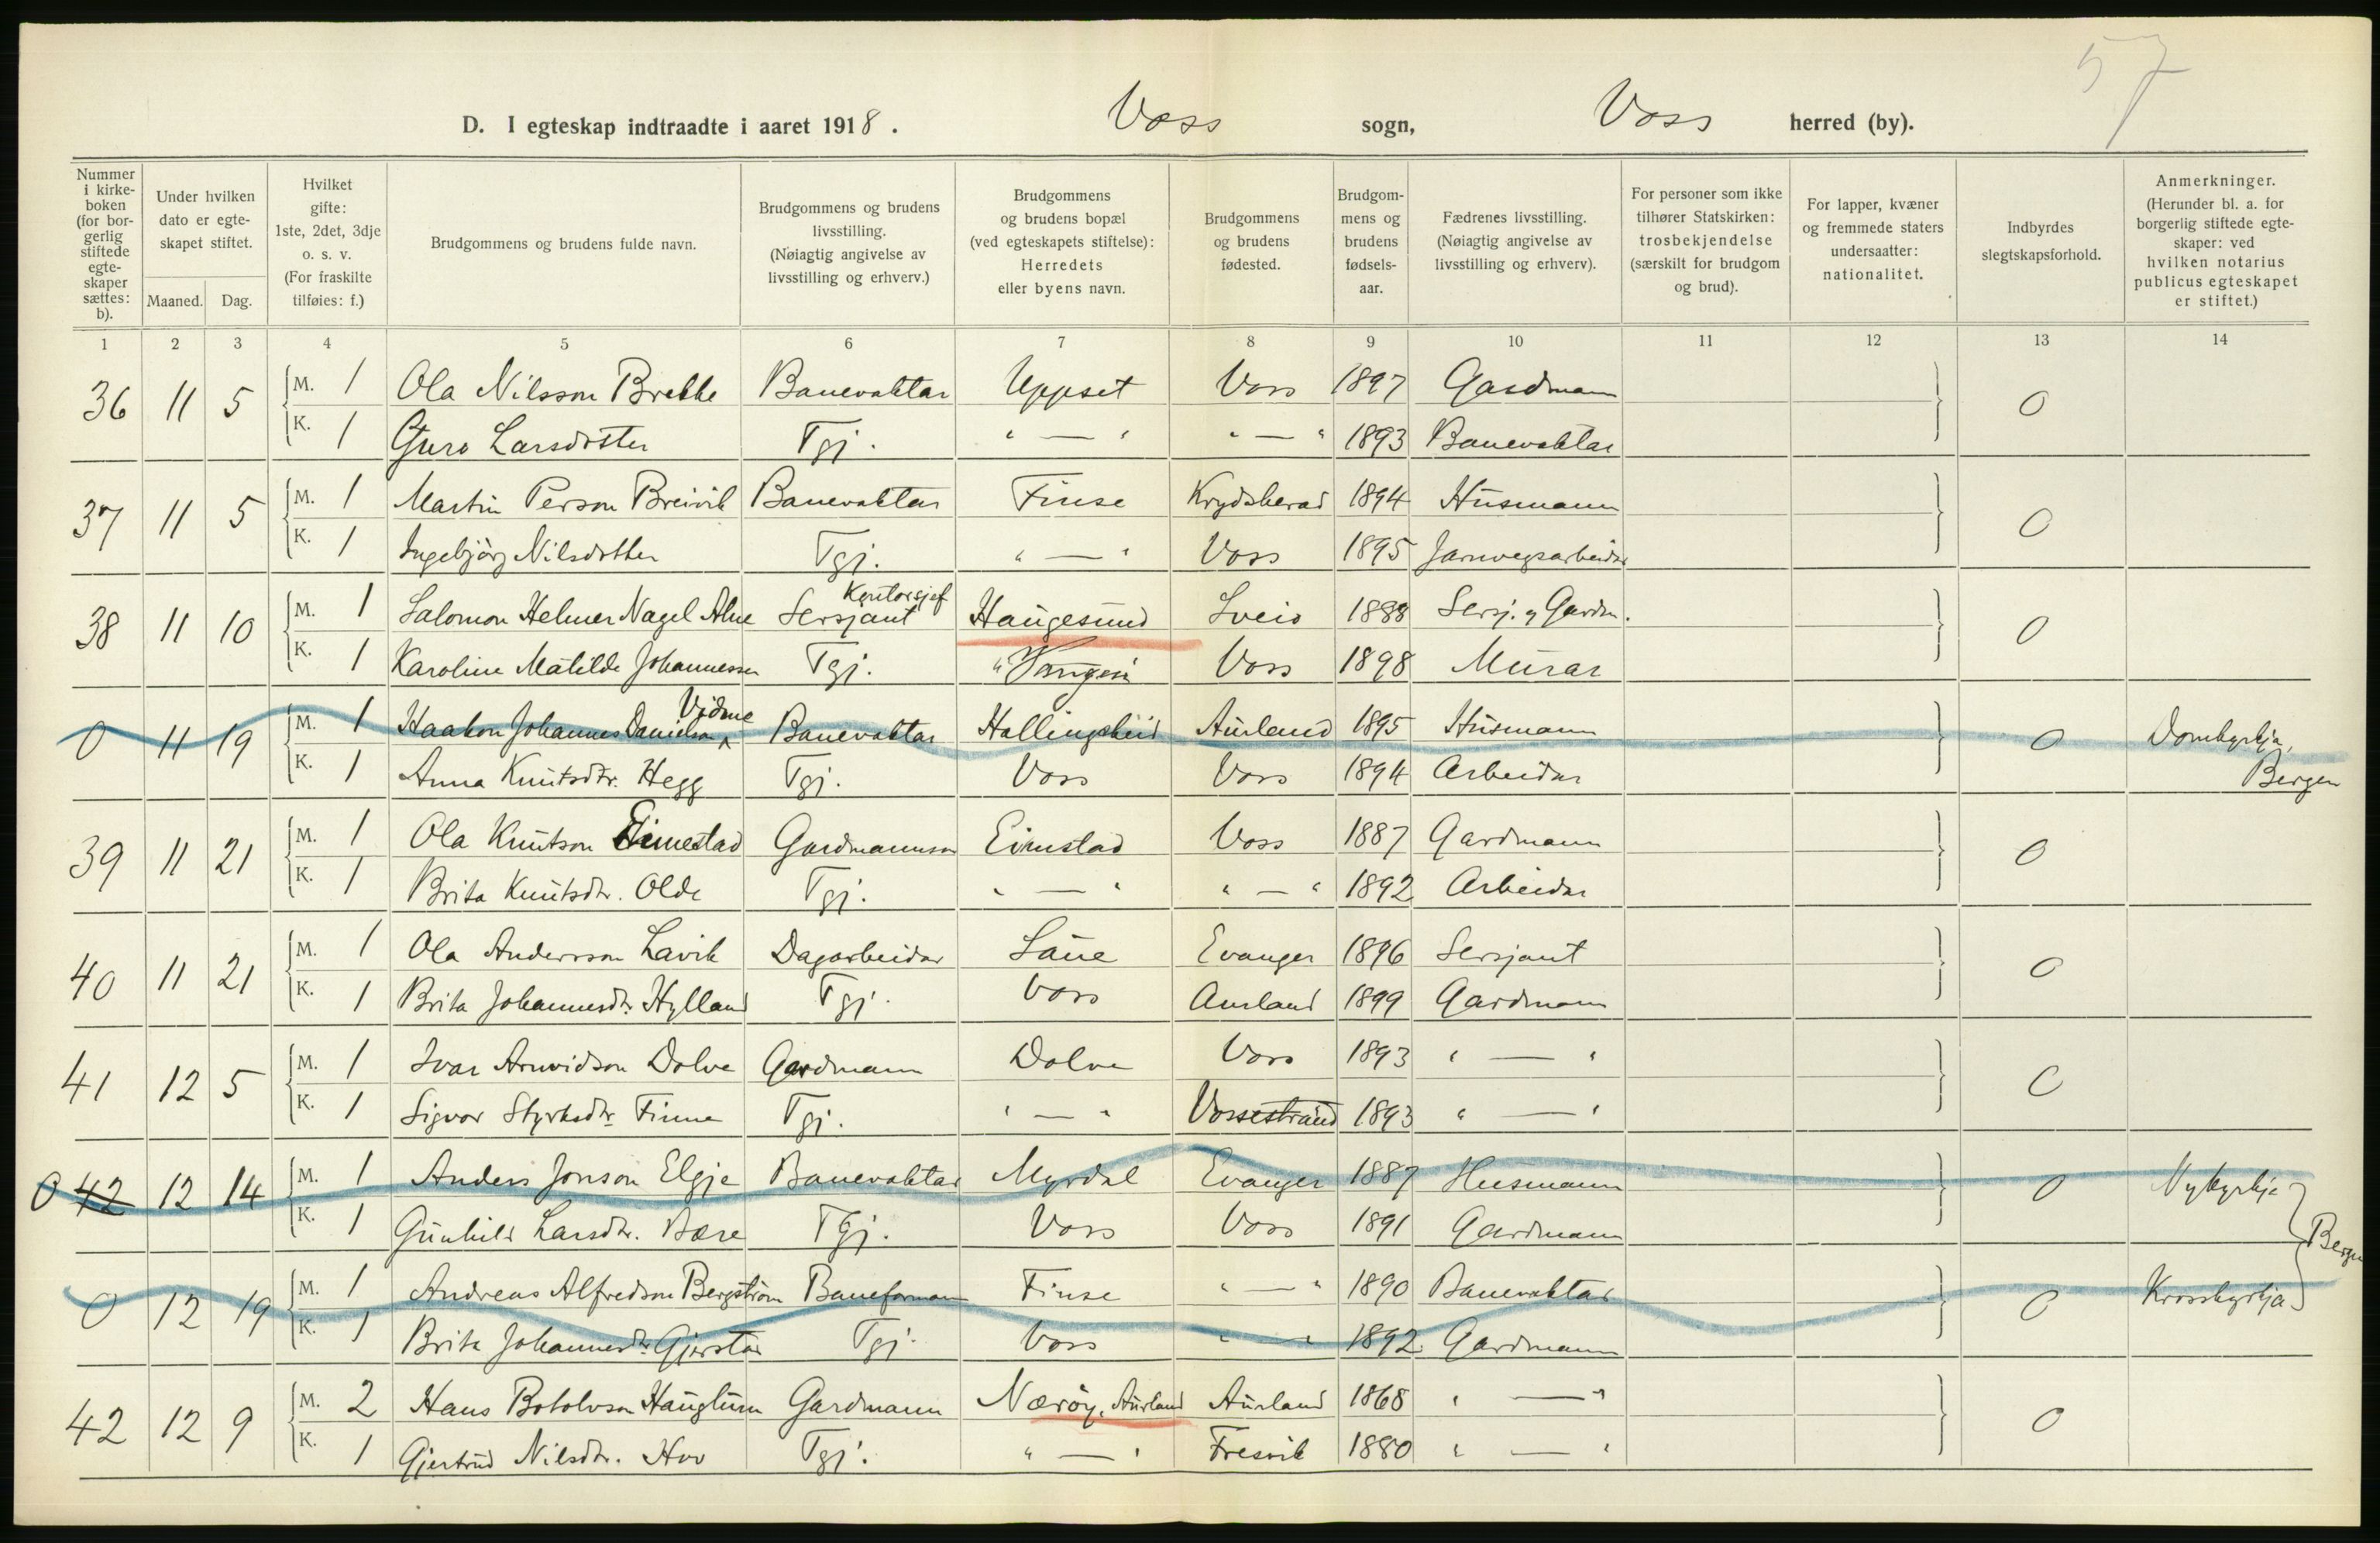 57
D. I egteskap indtraadte i aaret 1918. Voss sogn, Voss herred (by).
Nummer i kirkeboken (for borgerlig stiftede egteskaper sættes: b). | Under hvilken dato er egteskapet stiftet. Maaned. Dag. | Hvilket gifte: 1ste, 2det, 3dje o. s. v. (For fraskilte tilføies: f.) | Brudgommens og brudens fulde navn. | Brudgommens og brudens livsstilling. (Nøiagtig angivelse av livsstilling og erhverv.) | Brudgommens og brudens bopæl (ved egteskapets stiftelse): Herredets eller byens navn. | Brudgommens og brudens fødested. | Brudgommens og brudens fødselsaar. | Fædrenes livsstilling. (Nøiagtig angivelse av livsstilling og erhverv). | For personer som ikke tilhører Statskirken: trosbekjendelse (særskilt for brudgom og brud). | For lapper, kvæner og fremmede staters undersaatter: nationalitet. | Indbyrdes slegtskapsforhold. | Anmerkninger. (Herunder bl. a. for borgerlig stiftede egteskaper: ved hvilken notarius publicus egteskapet er stiftet.)
1 2 3 4 5 6 7 8 9 10 11 12 13 14
36 11 5 M. 1 Ola Nilsson Brekke Banevaktar Uppset Voss 1897 Gardmann 0
K. 1 Guro Larsdotter Tgj. " — " " — " 1893 Banevaktar
37 11 5 M. 1 Martin Person Breivik Banevaktar Finse Krydsherad 1894 Husmann 0
K. 1 Ingebjörg Nilsdotter Tgj. " — " Voss 1895 Jarnvegsarbeidar
38 11 10 M. 1 Salomon Helmer Nagel Alne Sersjant Kontorsjef Haugesund Sveio 1888 Sersj. og Gardm. 0
K. 1 Karoline Matilde Johannessen Tgj. " Vangen Voss 1898 Murar
0 11 19 M. 1 Haakon Johannes Danielson Vidme Banevaktar Hallingskeid Aurland 1895 Husmann 0 Domkyrkja,
K. 1 Anna Knutsdtr. Hegg Tgj. Voss Voss 1894 Arbeidar Bergen
39 11 21 M. 1 Ola Knutson Eimestad Gardmannson Eimstad Voss 1887 Gardmann 0
K. 1 Brita Knutsdtr. Olde Tgj. " — " " — " 1892 Arbeidar
40 11 21 M. 1 Ola Andersson Lavik Dagarbeidar Saue Evanger 1896 Sersjant 0
K. 1 Brita Johannesdtr. Hylland Tgj. Voss Aurland 1899 Gardmann
41 12 5 M. 1 Ivar Arnvidson Dolve Gardmann Dolve Voss 1893 " — " 0
K. 1 Sigvor Styrksdtr Finne Tgj. " — " Vossestrand 1893 " — "
0 42 12 14 M. 1 Anders Jonson Elgje Banevaktar Myrdal Evanger 1887 Husmann 0 Nykyrkje
K. 1 Gunhild Larsdtr. Bære Tgj. Voss Voss 1891 Gardmann Bergen
0 12 19 M. 1 Andreas Alfredson Bergström Baneformann Finse " — " 1890 Banevaktar 0 Krosskyrkja
K. 1 Brita Johannesdtr. Gjerstad Tgj. Voss " — " 1892 Gardmann
42 12 9 M. 2 Hans Botolvson Hauglum Gardmann Nærøy, Aurland Aurland 1868 " — " 0
K. 1 Gjertrud Nilsdtr. Hov Tgj. " — " Fresvik 1880 " — "